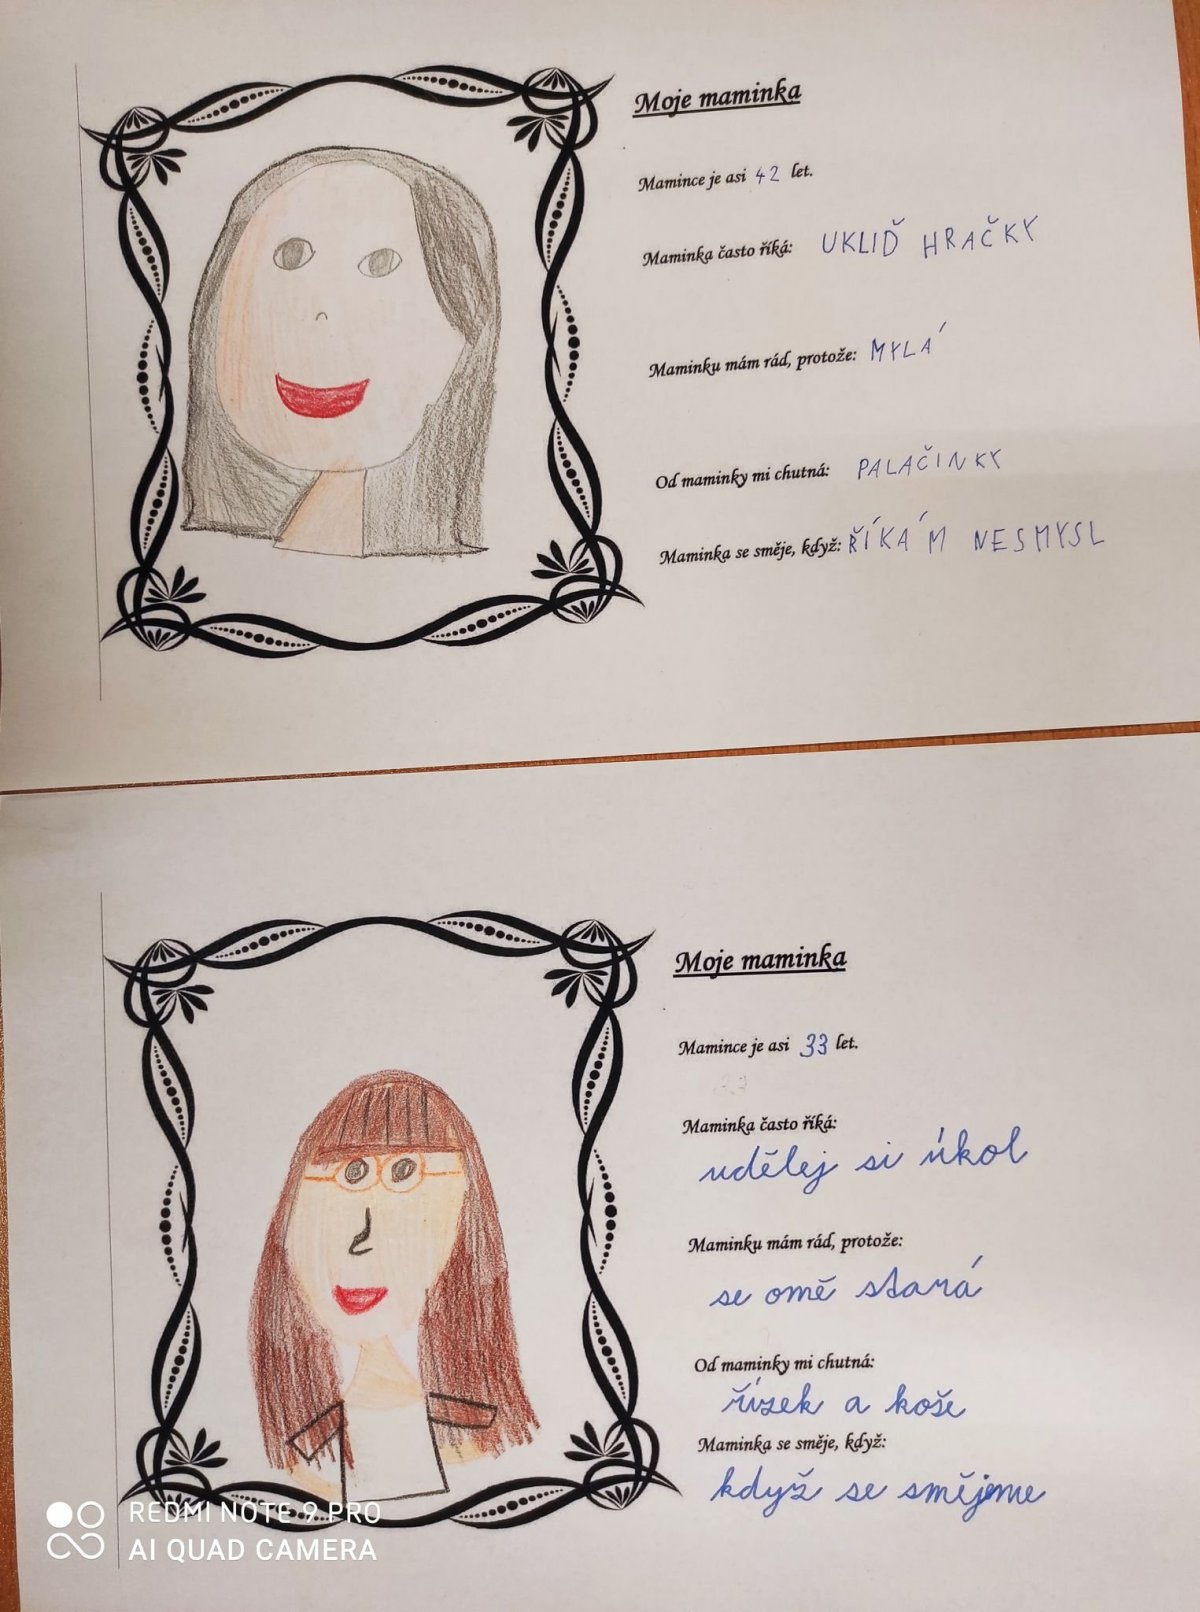 Moje maminka
Mamince je asi 42 let.
Maminka často říká: UKLIĎ HRAČKY
Maminku mám rád, protože: MYLÁ
Od maminky mi chutná: PALAČINKY
Maminka se směje, když: ŘÍKÁM NESMYSL
Moje maminka
Mamince je asi 33 let.
Maminka často říká:
udělej si úkol
Maminku mám rád, protože:
se omě stará
Od maminky mi chutná:
řízek a koše
Maminka se směje, když:
když se smějeme
REDMI NOTE 9 PRO
AI QUAD CAMERA